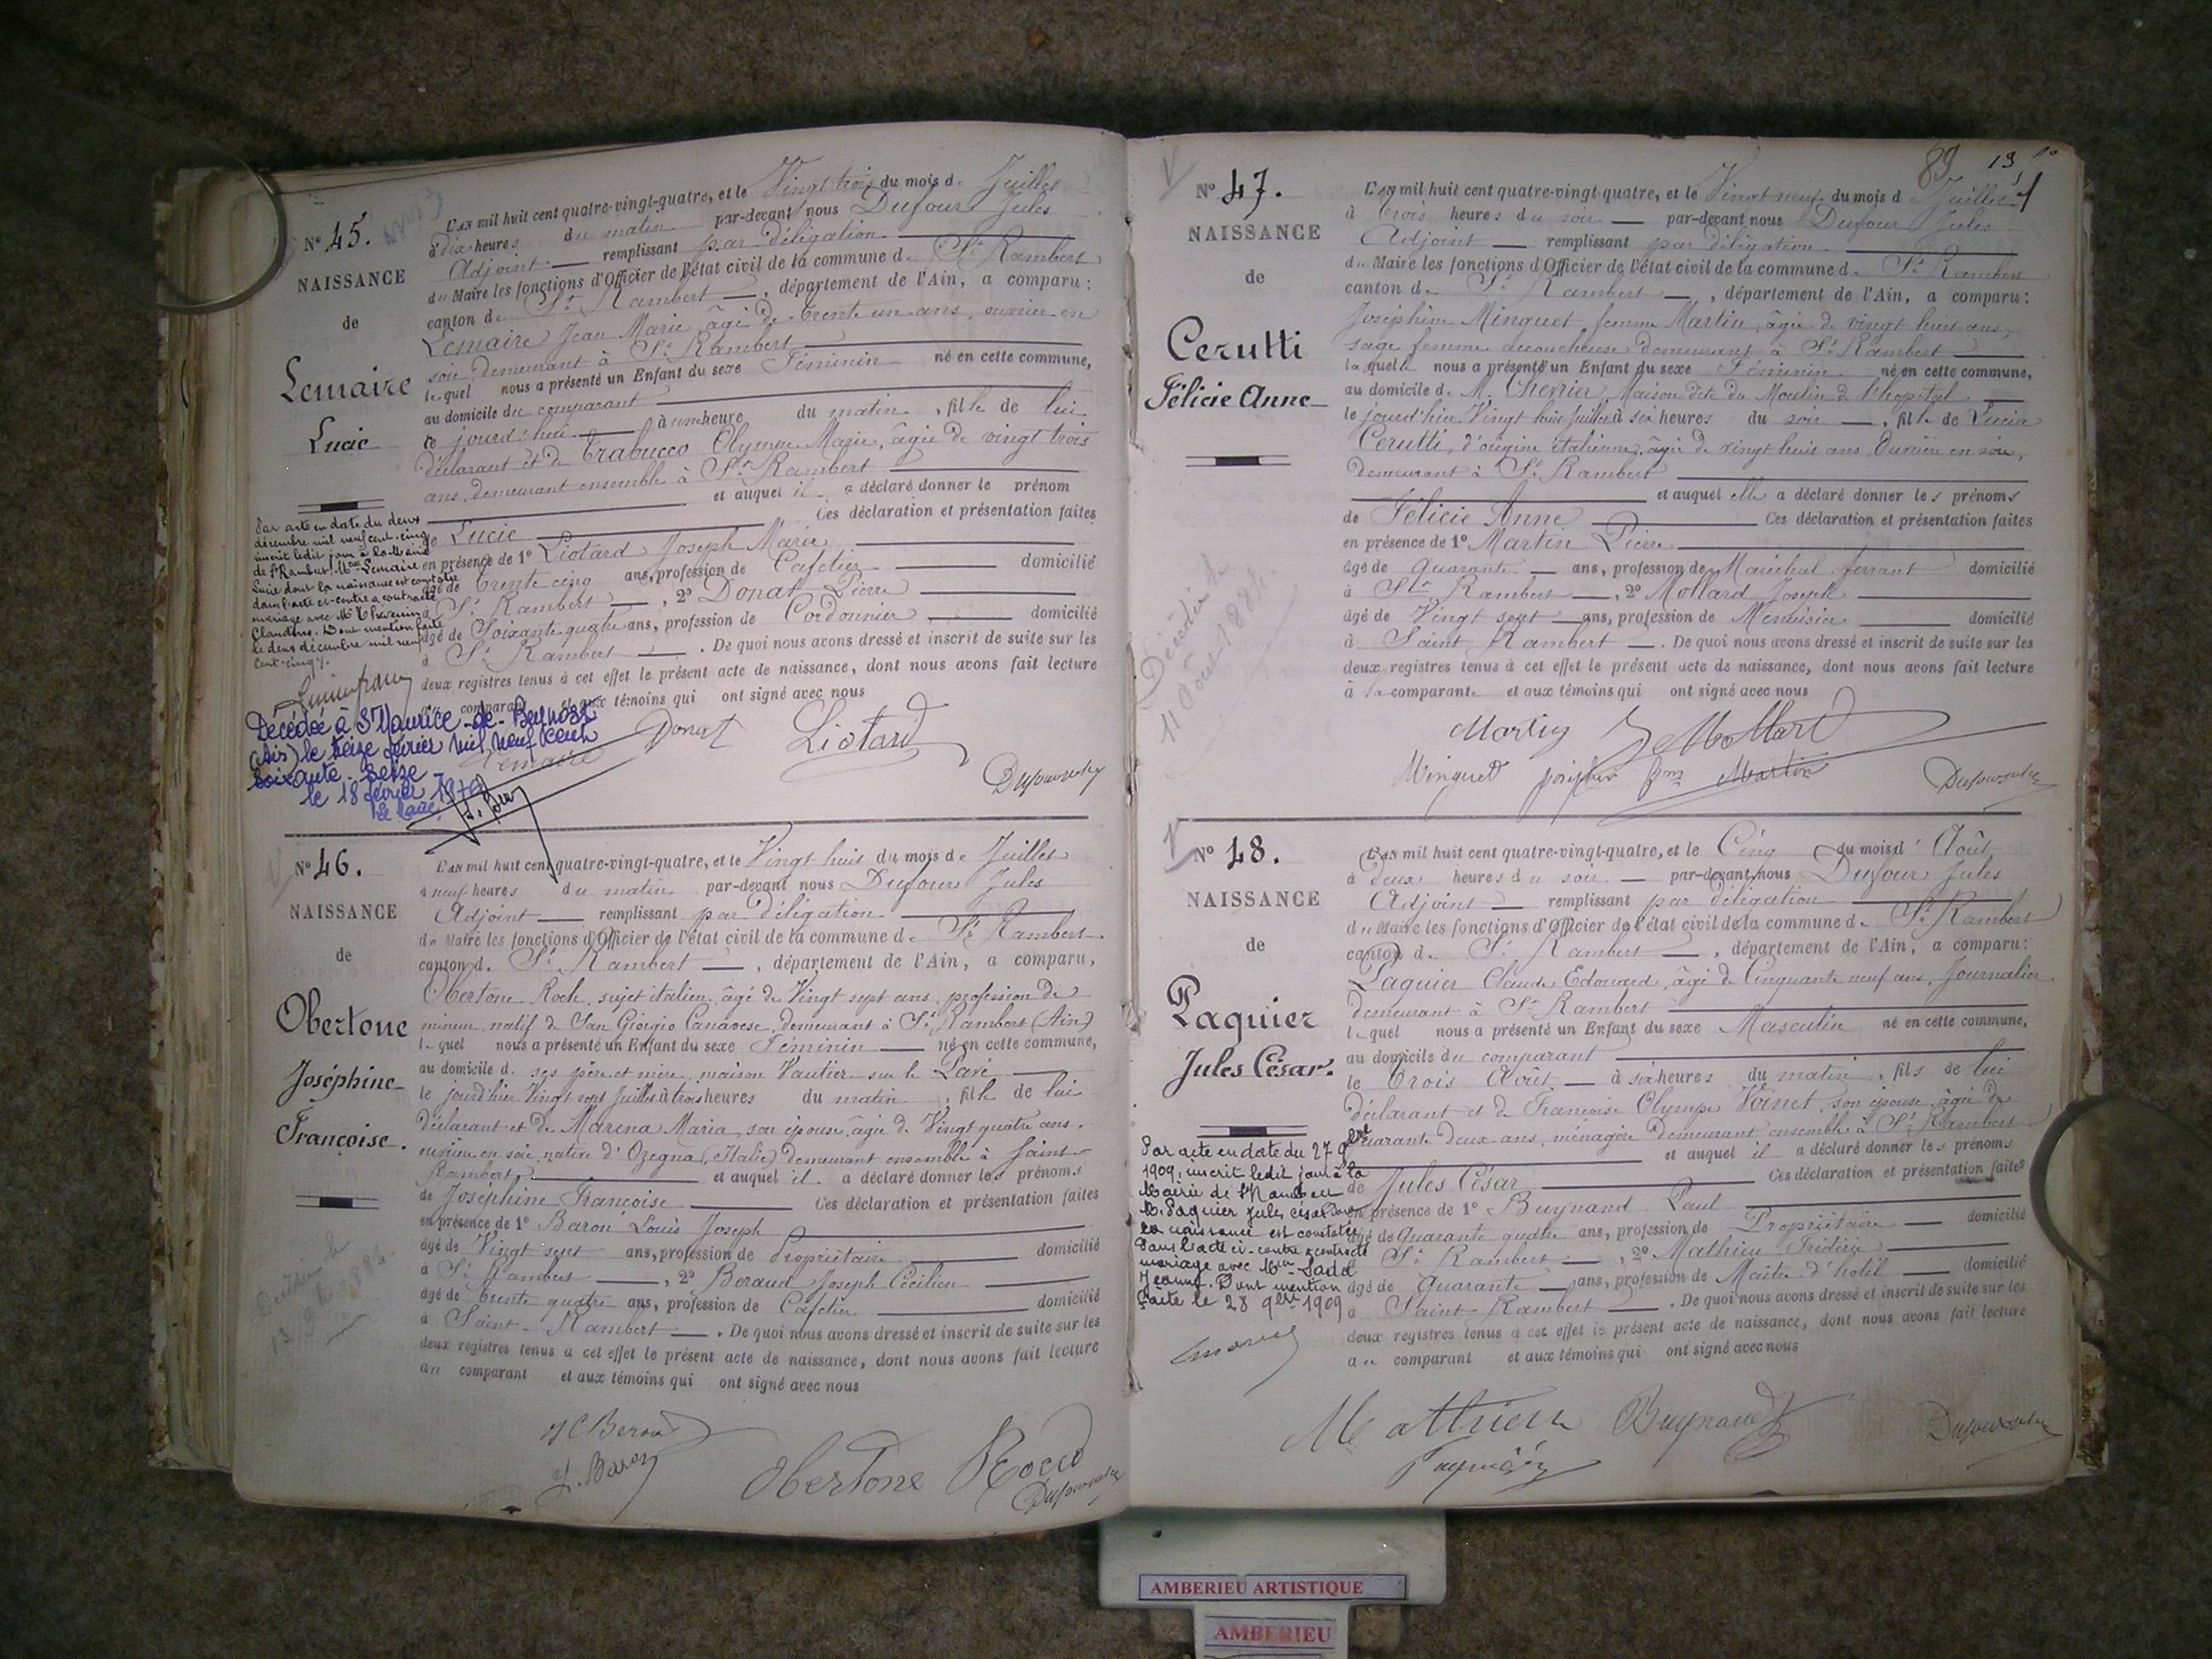 N° 45.
NAISSANCE
de
Lemaire
Lucie
L'an mil huit cent quatre-vingt-quatre, et le Vingt trois du mois de Juillet
à dix heures du matin par-devant nous Dufour Jules
Adjoint remplissant par délégation
du Maire les fonctions d'Officier de l'état civil de la commune de St Rambert
canton de St Rambert, département de l'Ain, a comparu:
Lemaire Jean Marie âgé de trente un ans, ouvrier en
soie, demeurant à St Rambert
lequel nous a présenté un Enfant du sexe Féminin né en cette commune,
au domicile du comparant
le jourd'hui à une heure du matin, fille de lui
déclarant et de Trabucco Olympe Marie, âgée de vingt trois
ans, demeurant ensemble à St Rambert
et auquel il a déclaré donner le prénom
de Lucie Ces déclaration et présentation faites
en présence de 1° Liotard Joseph Marie
âgé de trente cinq ans, profession de Cafetier domicilié
à St Rambert, 2° Donat Pierre
âgé de Soixante quatre ans, profession de Cordonnier domicilié
à St Rambert. De quoi nous avons dressé et inscrit de suite sur les
deux registres tenus à cet effet le présent acte de naissance, dont nous avons fait lecture
au comparant et aux témoins qui ont signé avec nous
Par acte en date du deux
décembre mil neuf cent-cinq
inscrit ledit jour à la Mairie
de St Rambert, Melle Lemaire
Lucie dont la naissance est constatée
dans l'acte ci-contre a contracté
mariage avec Mr Thevenin
Claudius. Dont mention faite
le deux décembre mil neuf
cent-cinq.
Décédée à St Maurice-de-Beynost
(Ain) le treize février mil neuf cent
soixante-seize
le 18 février 1976
Le Maire,
Lemaire
Donat Liotard
Dufour
N° 46.
NAISSANCE
de
Obertone
Joséphine
Françoise.
L'an mil huit cent quatre-vingt-quatre, et le Vingt huit du mois de Juillet
à neuf heures du matin par-devant nous Dufour Jules
Adjoint remplissant par délégation
du Maire les fonctions d'Officier de l'état civil de la commune de St Rambert
canton de St Rambert, département de l'Ain, a comparu,
Obertone Roch, sujet italien, âgé de Vingt sept ans, profession de
mineur, natif de San Giorgio Canavese, demeurant à St Rambert (Ain)
lequel nous a présenté un Enfant du sexe Féminin né en cette commune,
au domicile de ses père et mère, maison Vautier sur le Pavé
le jourd'hier Vingt sept Juillet à trois heures du matin, fille de lui
déclarant et de Marena Maria, son épouse, âgée de Vingt quatre ans,
ouvrière en soie, native d'Ozegna (Italie) demeurant ensemble à Saint-
Rambert et auquel il a déclaré donner les prénoms
de Joséphine Françoise Ces déclaration et présentation faites
en présence de 1° Baron Louis Joseph
âgé de Vingt sept ans, profession de Propriétaire domicilié
à St Rambert, 2° Beraud Joseph Cécilien
âgé de trente quatre ans, profession de Cafetier domicilié
à Saint-Rambert. De quoi nous avons dressé et inscrit de suite sur les
deux registres tenus à cet effet le présent acte de naissance, dont nous avons fait lecture
au comparant et aux témoins qui ont signé avec nous
Décédée le
1884.
J C Beraud
J. Baron
Obertone Rocco
Dufour
89
N° 47.
NAISSANCE
de
Cerutti
Félicie Anne
L'an mil huit cent quatre-vingt-quatre, et le Vingt neuf du mois d Juillet
à trois heures du soir par-devant nous Dufour Jules
Adjoint remplissant par délégation
du Maire les fonctions d'Officier de l'état civil de la commune de St Rambert
canton de St Rambert, département de l'Ain, a comparu:
Joséphine Minguet femme Martin, âgée de vingt huit ans,
sage femme accoucheuse demeurant à St Rambert
laquelle nous a présenté un Enfant du sexe Féminin né en cette commune,
au domicile de M. Chevrier, Maison dite du Moulin de l'hopital
le jourd'hier Vingt huit Juillet à six heures du soir, fille de Lucia
Cerutti, d'origine italienne, âgée de vingt huit ans, Ouvrière en soie,
demeurant à St Rambert
et auquel elle a déclaré donner les prénoms
de Félicie Anne Ces déclaration et présentation faites
en présence de 1° Martin Pierre
âgé de Quarante ans, profession de Maréchal ferrant domicilié
à St Rambert, 2° Mollard Joseph
âgé de Vingt sept ans, profession de Menuisier domicilié
à Saint Rambert. De quoi nous avons dressé et inscrit de suite sur les
deux registres tenus à cet effet le présent acte de naissance, dont nous avons fait lecture
à la comparante et aux témoins qui ont signé avec nous
Décédée le
11 Août 1884.
Martin J Mollard
Minguet joséphin fme Martin
Dufour
N° 48.
NAISSANCE
de
Paquier
Jules César.
L'an mil huit cent quatre-vingt-quatre, et le Cinq du mois d'Août
à deux heures du soir par-devant nous Dufour Jules
Adjoint remplissant par délégation
du Maire les fonctions d'Officier de l'état civil de la commune de St Rambert
canton de St Rambert, département de l'Ain, a comparu:
Paquier Claude Edouard, âgé de Cinquante neuf ans, Journalier
demeurant à St Rambert
lequel nous a présenté un Enfant du sexe Masculin né en cette commune,
au domicile du comparant
le trois Août à six heures du matin, fils de lui
déclarant et de Françoise Olympe Voinet, son épouse, âgée de
quarante deux ans, ménagère demeurant ensemble à St Rambert
et auquel il a déclaré donner les prénoms
de Jules César Ces déclaration et présentation faites
en présence de 1° Buynand Paul
âgé de Quarante quatre ans, profession de Propriétaire domicilié
à St Rambert, 2° Mathieu Frédéric
âgé de Quarante ans, profession de Maître d'hôtel domicilié
à Saint-Rambert. De quoi nous avons dressé et inscrit de suite sur les
deux registres tenus à cet effet le présent acte de naissance, dont nous avons fait lecture
au comparant et aux témoins qui ont signé avec nous
Par acte en date du 27 9bre
1909, inscrit ledit jour à la
Mairie de St Rambert
M. Paquier Jules César dont
la naissance est constatée
dans l'acte ci-contre a contracté
mariage avec Melle
Jeanne. Dont mention
faite le 28 9bre 1909
Mathieu Buynand
Paquier
Dufour
AMBERIEU ARTISTIQUE
AMBERIEU